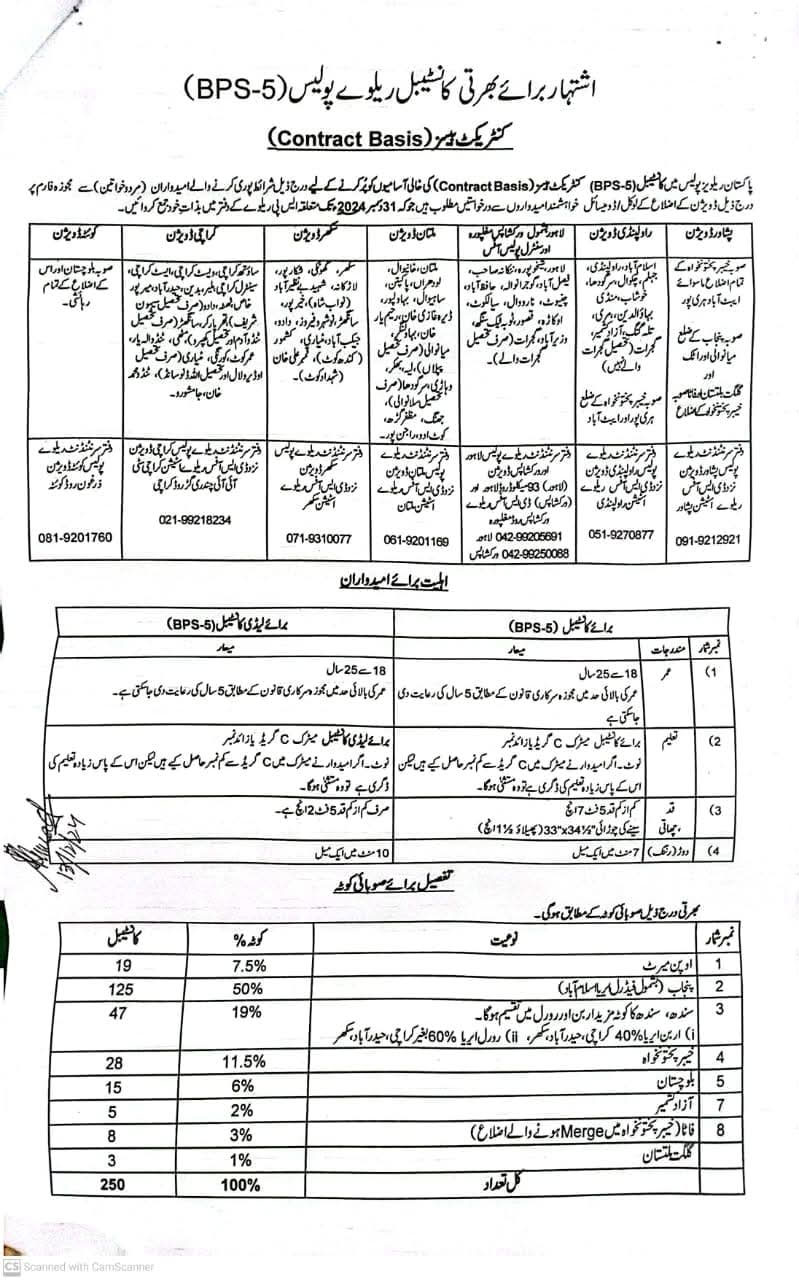 اشتہار برائے بھرتی کانسٹیبل ریلوے پولیس (BPS-5)
کنٹریکٹ بیسز (Contract Basis)
پاکستان ریلویز پولیس میں کانسٹیبل (BPS-5) کنٹریکٹ بیسز (Contract Basis) کی خالی آسامیوں کو پُر کرنے کے لیے درج ذیل شرائط پوری کرنے والے امیدواران (مرد و خواتین) سے مجوزہ فارم پر
درج ذیل ڈویژن کے اضلاع کے لوکل / ڈومیسائل خواہشمند امیدواروں سے درخواستیں مطلوب ہیں جو کہ 31 دسمبر 2024 تک متعلقہ ایس پی ریلوے کے دفتر میں بذات خود جمع کروائیں۔
پشاور ڈویژن
صوبہ خیبر پختونخواہ کے
تمام اضلاع ماسوائے
ایبٹ آباد ہری پور
صوبہ پنجاب کے ضلع
میانوالی اور اٹک
اور
گلگت بلتستان / فاٹا صوبہ
خیبر پختونخواہ کے اضلاع
دفتر سپرنٹنڈنٹ ریلوے
پولیس پشاور ڈویژن
نزد ڈی ایس آفس
ریلوے اسٹیشن پشاور
091-9212921
راولپنڈی ڈویژن
اسلام آباد، راولپنڈی،
جہلم، چکوال، سرگودھا،
خوشاب، منڈی
بہاؤالدین، میری،
تلہ گنگ، آزاد کشمیر،
گجرات (تحصیل گجرات
والے نہیں)
صوبہ خیبر پختونخواہ کے ضلع
ہری پور اور ایبٹ آباد
دفتر سپرنٹنڈنٹ ریلوے
پولیس راولپنڈی ڈویژن
نزد ڈی ایس آفس ریلوے
اسٹیشن راولپنڈی
051-9270877
لاہور بشمول ورکشاپس مغلپورہ
اور سنٹرل پولیس آفس
لاہور، شیخوپورہ، ننکانہ صاحب،
فیصل آباد، گوجرانوالہ، حافظ آباد،
چنیوٹ، نارووال، سیالکوٹ،
اوکاڑہ، قصور، ٹوبہ ٹیک سنگھ،
وزیر آباد، گجرات (صرف تحصیل
گجرات والے)۔
دفتر سپرنٹنڈنٹ ریلوے پولیس لاہور
اور ورکشاپس ڈویژن
(لاہور) 93-میکلوڈ روڈ لاہور اور
(ورکشاپس) ڈی ایس آفس ریلوے
ورکشاپس روڈ مغلپورہ
042-99205691 لاہور
042-99250068 ورکشاپس
ملتان ڈویژن
ملتان، خانیوال،
لودھراں، پاکپتن،
ساہیوال، بہاولپور،
ڈیرہ غازی خان، رحیم یار
خان، بہاولنگر،
میانوالی (صرف تحصیل
پپلاں)، لیہ، بھکر،
وہاڑی، سرگودھا (صرف
تحصیل سلانوالی)،
جھنگ، مظفر گڑھ،
کوٹ ادو، راجن پور۔
دفتر سپرنٹنڈنٹ ریلوے
پولیس ملتان ڈویژن
نزد ڈی ایس آفس ریلوے
اسٹیشن ملتان
061-9201169
سکھر ڈویژن
سکھر، گھوٹکی، شکارپور،
لاڑکانہ، شہید بے نظیر آباد
(نواب شاہ)، خیرپور،
سانگھڑ، نوشہرو فیروز، دادو،
جیکب آباد، مٹیاری، کشمور
(کندھ کوٹ)، قمبر علی خان
(شہداد کوٹ)۔
دفتر سپرنٹنڈنٹ ریلوے پولیس
سکھر ڈویژن
نزد ڈی ایس آفس ریلوے
اسٹیشن سکھر
071-9310077
کراچی ڈویژن
ساؤتھ کراچی، ویسٹ کراچی، ایسٹ کراچی،
سینٹرل کراچی، ملیر، بدین، حیدر آباد، میرپور
خاص، ٹھٹھہ، دادو (صرف تحصیل سیہون
شریف)، تھرپارکر، سانگھڑ (صرف تحصیل
ٹنڈو آدم اور تحصیل کھپرو)، مٹھی، ٹنڈوالہ یار،
عمر کوٹ، کورنگی، مٹیاری (صرف تحصیل
اوڈیرو لال اور تحصیل اللہ ڈنو ساند)، ٹنڈو محمد
خان، جامشورو۔
دفتر سپرنٹنڈنٹ ریلوے پولیس کراچی ڈویژن
نزد ڈی ایس آفس ریلوے اسٹیشن کراچی سٹی
آئی آئی چندریگر روڈ کراچی
021-99218234
کوئٹہ ڈویژن
صوبہ بلوچستان اور اس
کے اضلاع کے تمام
رہائشی۔
دفتر سپرنٹنڈنٹ ریلوے
پولیس کوئٹہ ڈویژن
زرغون روڈ کوئٹہ
081-9201760
اہلیت برائے امیدواران
برائے کانسٹیبل (BPS-5) برائے لیڈی کانسٹیبل (BPS-5)
نمبر شمار مندرجات معیار معیار
1) عمر 18 سے 25 سال
عمر کی بالائی حد میں مجوزہ سرکاری قانون کے مطابق 5 سال کی رعایت دی
جاسکتی ہے
18 سے 25 سال
عمر کی بالائی حد میں مجوزہ سرکاری قانون کے مطابق 5 سال کی رعایت دی جاسکتی ہے۔
2) تعلیم برائے کانسٹیبل میٹرک C گریڈ یا زائد نمبر
نوٹ۔ اگر امیدوار نے میٹرک میں C گریڈ سے کم نمبر حاصل کیے ہیں لیکن
اس کے پاس زیادہ تعلیم کی ڈگری ہے تو وہ مستثنیٰ ہوگا۔
برائے لیڈی کانسٹیبل میٹرک C گریڈ یا زائد نمبر
نوٹ۔ اگر امیدوار نے میٹرک میں C گریڈ سے کم نمبر حاصل کیے ہیں لیکن اس کے پاس زیادہ تعلیم کی
ڈگری ہے تو وہ مستثنیٰ ہوگا۔
3) قد کم از کم قد 5 فٹ 7 انچ صرف کم از کم قد 5 فٹ 2 انچ ہے۔
چھاتی، سینے کی چوڑائی "½34x"33 (پھیلاؤ ½1 انچ)
4) دوڑ (رننگ) 7 منٹ میں ایک میل 10 منٹ میں ایک میل
13/12/24
تفصیل برائے صوبائی کوٹہ
بھرتی درج ذیل صوبائی کوٹہ کے مطابق ہوگی۔
نمبر شمار نوعیت کوٹہ % کانسٹیبل
1 اوپن میرٹ 7.5% 19
2 پنجاب (بشمول فیڈرل ایریا اسلام آباد) 50% 125
3 سندھ، سندھ کا کوٹہ مزید اربن اور رورل میں تقسیم ہوگا۔ 19% 47
i) اربن ایریا 40% کراچی، حیدر آباد، سکھر، ii) رورل ایریا 60% بغیر کراچی، حیدر آباد، سکھر
4 خیبر پختونخواہ 11.5% 28
5 بلوچستان 6% 15
7 آزاد کشمیر 2% 5
8 فاٹا (خیبر پختونخواہ میں Merge ہونے والے اضلاع) 3% 8
گلگت بلتستان 1% 3
کل تعداد 100% 250
CS Scanned with CamScanner